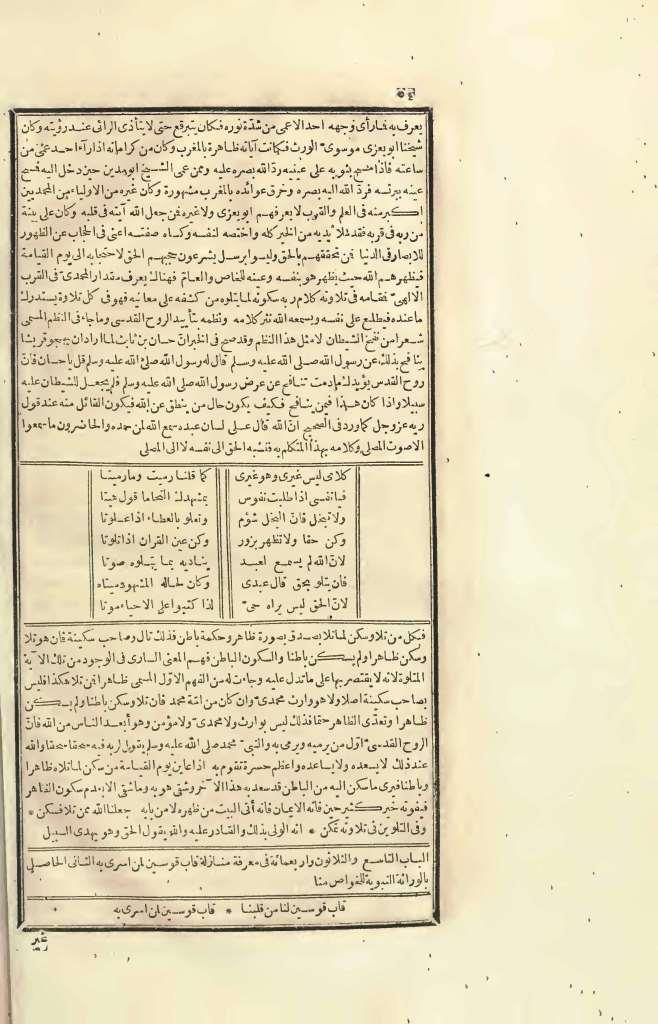 ٥٤
يعرف به فما رأى وجهه احد الا عمى من شدة نوره فكان يتبرقع حتى لا يتأذى الرائى عند رؤيته وكان
شيخنا ابو يعزى موسوى الورث فكانت آياته ظاهرة بالمغرب وكان من كراماته اذا رآه احد عمى من
ساعته فاذا مسح بثوبه على عينيه رد الله بصره عليه وممن عمى الشيخ ابو مدين حين دخل اليه فمسح
عينه ببرنسه فرد الله اليه بصره وخرق عوائده بالمغرب مشهورة وكان غيره من الاولياء من المحمديين
اكبر منه فى العلم والقرب لا يعرفهم ابو يعزى ولا غيره فمن جعل الله آيته فى قلبه وكان على بينة
من ربه فى قربه فقد ملأ يديه من الخير كله واختصه لنفسه وكساه صفته اعنى فى الحجاب عن الظهور
للابصار فى الدنيا فمن تحققهم بالحق وليسوا برسل يشرعون حجبهم الحق لاحتجابه الى يوم القيامة
فيظهرهم الله حيث يظهر هو بنفسه وعينه للخاص والعام فهنالك يعرف مقدار المحمدى فى القرب
الالهى فمقامه فى تلاوته كلام ربه سكوته لما يتلوه من كشفه على معانيه فهو فى كل تلاوة يستدرك
ما عنده فيطلع على نفسه ويسمعه الله نثر كلامه ونظمه بتأييد الروح القدسى وما جاء فى النظم المسمى
شعرا من نفخ الشيطان لا مثل هذا النظم وقد صح فى الخبر ان حسان بن ثابت لما اراد ان يهجو قريشا
ينافح بذلك عن رسول الله صلى الله عليه وسلم قال له رسول الله صلى الله عليه وسلم قل يا حسان فان
روح القدس يؤيدك ما دمت تنافح عن عرض رسول الله صلى الله عليه وسلم فلم يجعل للشيطان عليه
سبيلا واذا كان هذا فيمن ينافح فكيف يكون حال من ينطق عن الله فيكون القائل منه عند قوله
ربه عز وجل كما ورد فى الصحيح ان الله قال على لسان عبده سمع الله لمن حمده والحاضرون ما سمعوا
الاصوت المصلى وكلامه بهذا المتكلم به فنسبه الحق الى نفسه لا الى المصلى
كلامى ليس غيرى وهو غيرى كما قلنا رميت وما رميتا
فيا نفسى اذا طلبت نفوس بمشهدك
ولا تبخل فان البخل شؤم وتعلو بالعطاء اذا علوتا
وكن حقا ولا تظهر بزور وكن عين القران اذا تلوتا
لان الله لم يسمع لعبد يناديه بما يتلوه صوتا
فان يتلو بحق قال عبدى وكان لحاله المشهود ميتاه
لان الحق ليس يراه حى لذا كتبوا على الاحياء موتا
فكل من تلا وسكن لما تلا بصدق بصورة ظاهر وحكمة باطن فذلك تال وصاحب سكينة فان هو تلا
وسكن ظاهرا ولم يسكن باطنا والسكون الباطن فهم المعنى السارى فى الوجود من تلك الآية
المتلوة لانه لا يقتصر بها على ما تدل عليه وجاءت له من الفهم الاول المسمى ظاهرا فمن تلا هكذا فليس
بصاحب سكينة اصلا ولا هو وارث محمدى وان كان من امة محمد فان تلا وسكن باطنا ولم يسكن
ظاهرا وتعدى الظاهر حتما فذلك ليس بوارث ولا محمدى ولا مؤمن وهو أبعد الناس من الله فان
الروح القدسى اول من يرميه ويرمى به والنبى محمد صلى الله عليه وسلم يقول لربه فيه سحقا سحقا والله
عند ذلك لا يسعده ولا يساعده واعظم حسرة تقوم به اذا عاين يوم القيامة من سكن لما تلاه ظاهرا
وباطنا فيرى ما سكن اليه من الباطن قد سعد به هذا الآخر وشقى هو به وما شقى الا بعدم سكون الظاهر
فيفوته خير كثير حين فاته الايمان فانه أتى البيت من ظهره لا من بابه جعلنا الله ممن تلا فسكن *
وفى التلوين فى تلاوته تمكن * انه الولى بذلك والقادر عليه والله يقول الحق وهو يهدى السبيل
الباب التاسع والثلاثون واربعمائة فى معرفة منازلة قاب قوسين لمن اسرى به الثانى الحاصل
بالوراثة النبوية للخواص منا
قاب قوسين لنا من قلبنا * قاب قوسين لمن اسرى به
غير